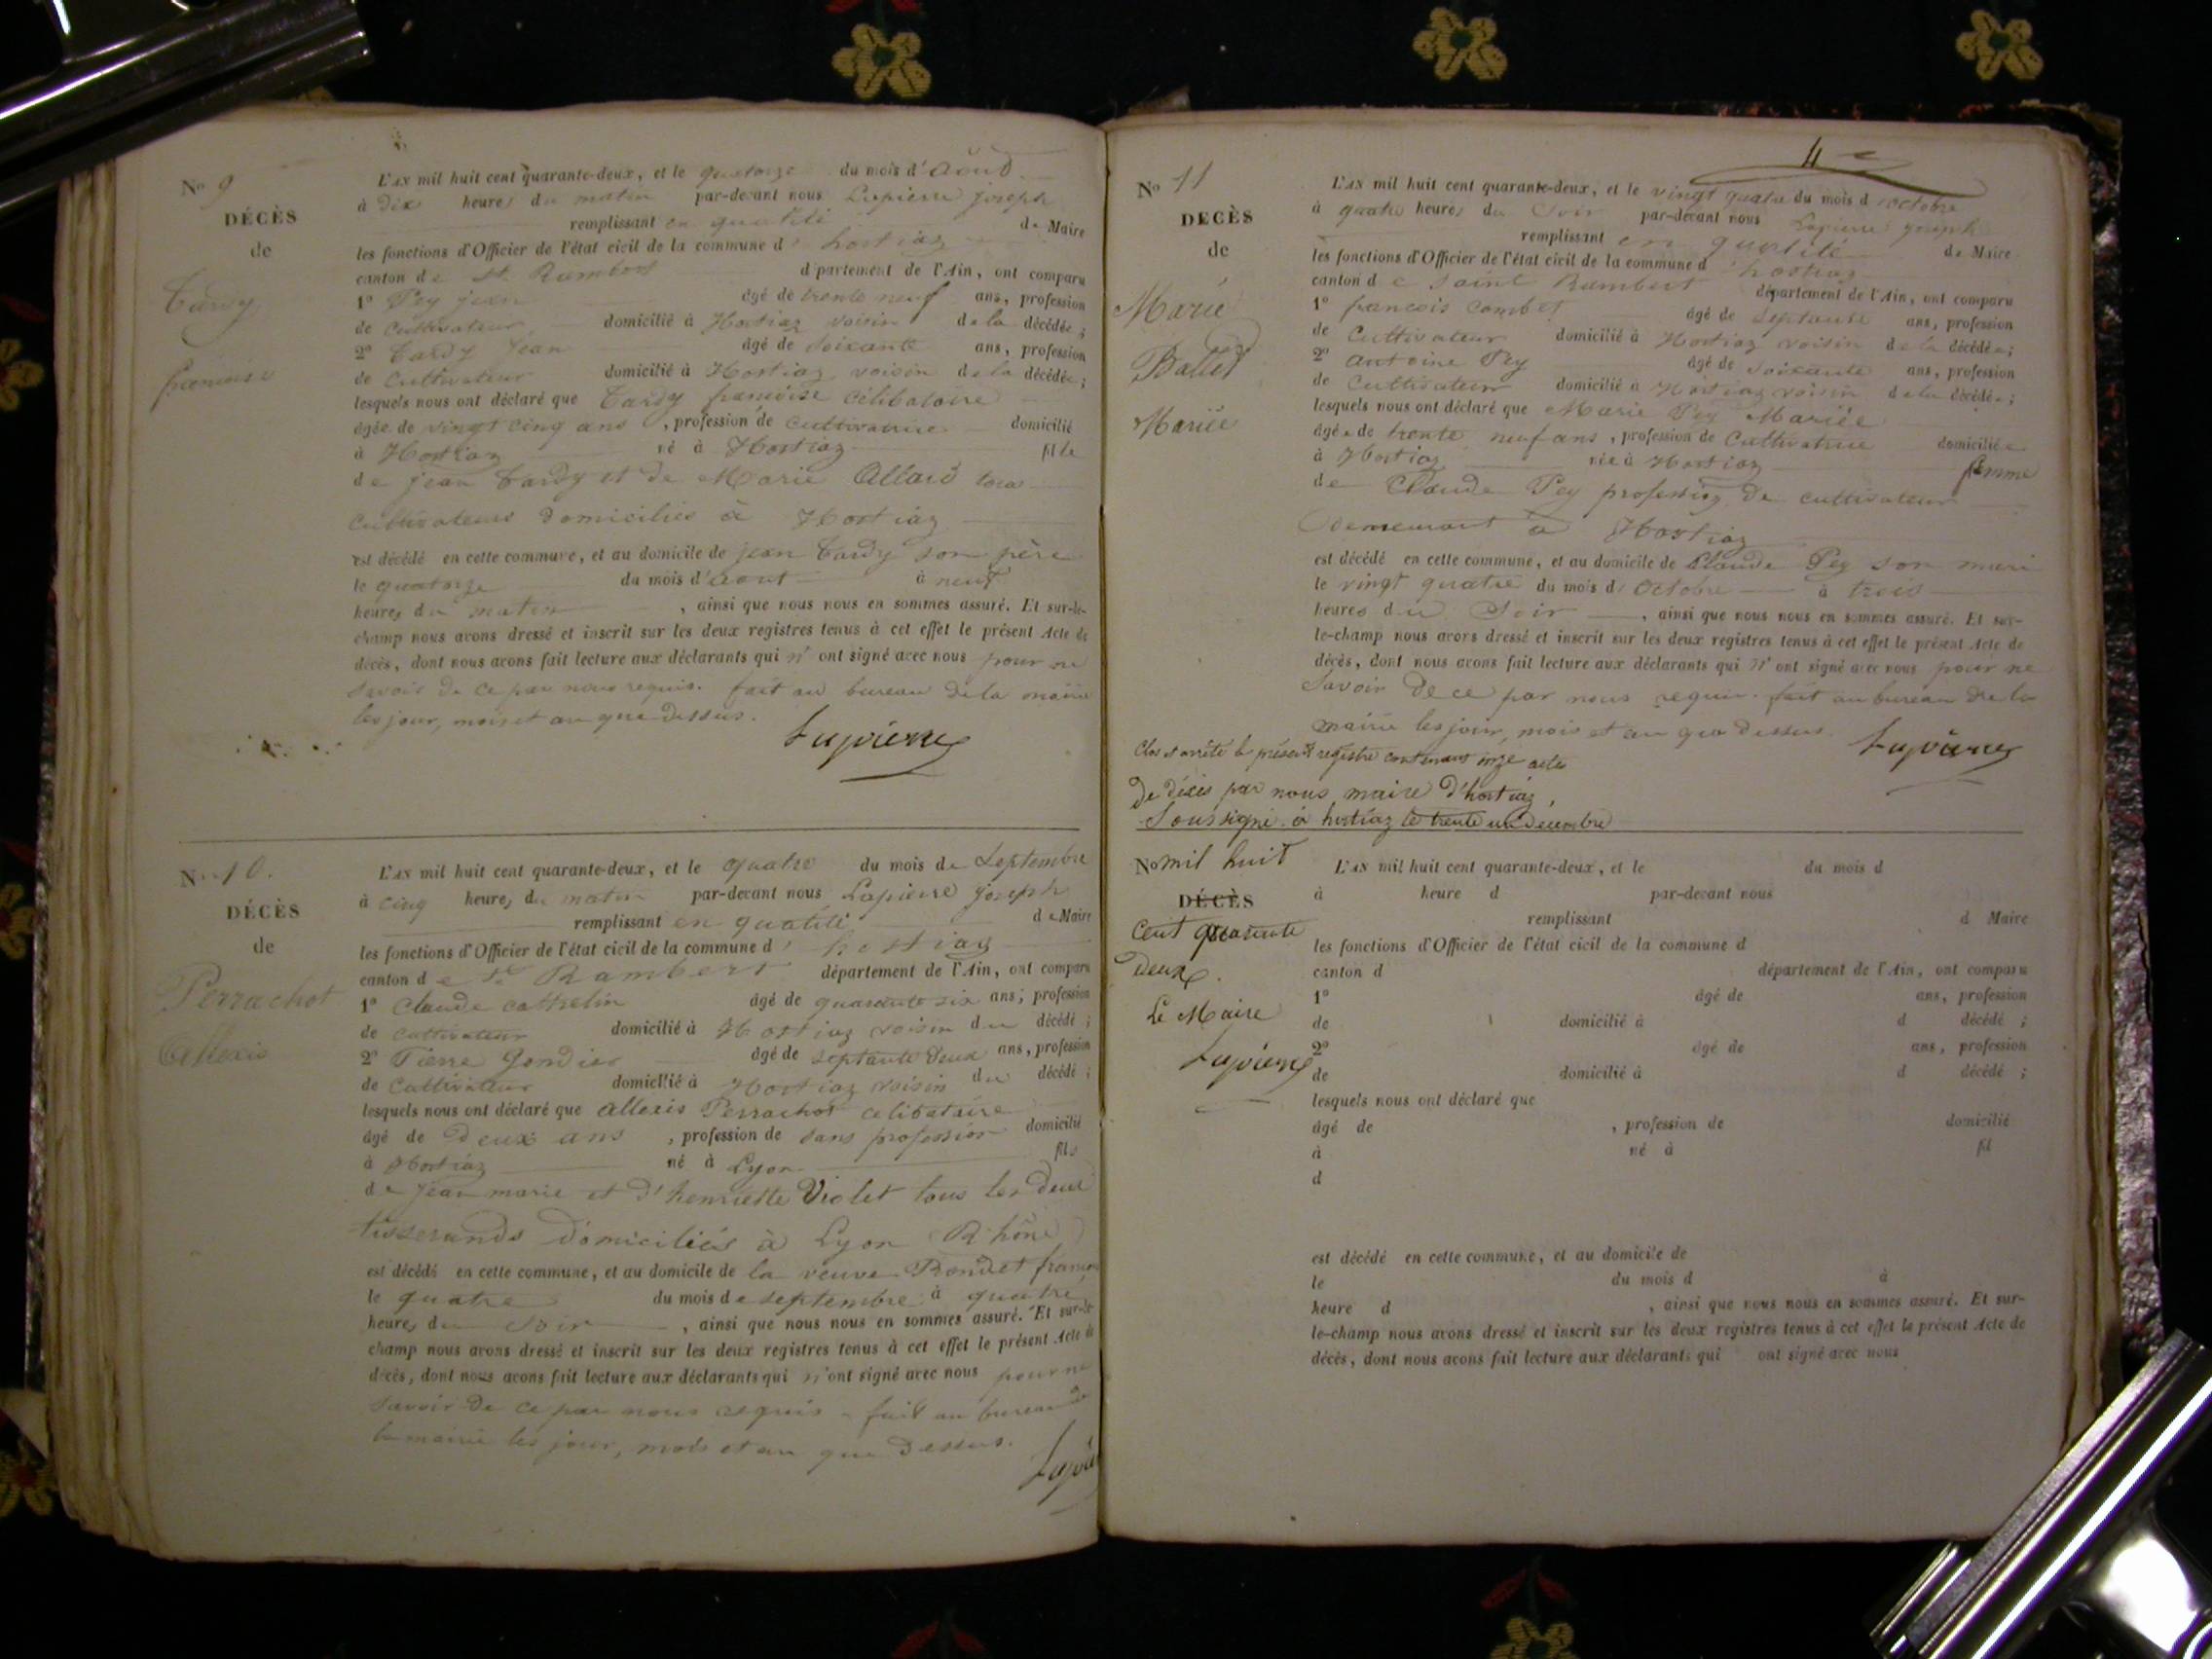 No 9
DÉCÈS
de
Tardy
francoise
L'AN mil huit cent quarante-deux, et le quatorze du mois d'Aoud
à dix heures du matin par-devant nous Lapierre joseph
remplissant en qualité de Maire
les fonctions d'Officier de l'état civil de la commune d' hostiaz
canton de St. Rambert département de l'Ain, ont comparu
1º Pey jean âgé de trente neuf ans, profession
de Cultivateur domicilié à Hostiaz voisin de la décédée;
2º Tardy Jean âgé de soixante ans, profession
de Cultivateur domicilié à Hostiaz voisin de la décédée;
lesquels nous ont déclaré que Tardy francoise célibatoire
âgée de vingt cinq ans, profession de cultivatrice domicilié
à Hostiaz né à Hostiaz fil le
de jean Tardy et de Marie Allard tous
Cultivateurs domiciliés à Hostiaz
est décédé en cette commune, et au domicile de jean Tardy son père
le quatorze du mois d'aout à neuf
heures du matin, ainsi que nous nous en sommes assuré. Et sur-le-
champ nous avons dressé et inscrit sur les deux registres tenus à cet effet le présent Acte de
décès, dont nous avons fait lecture aux déclarants qui n' ont signé avec nous pour ne
savoir de ce par nous requis. fait au bureau de la mairie
les jour, mois et an que dessus.
Lapierre
No 10.
DÉCÈS
de
Perrachot
Allexis
L'AN mil huit cent quarante-deux, et le quatre du mois de Septembre
à cinq heures du matin par-devant nous Lapierre joseph
remplissant en qualité de Maire
les fonctions d'Officier de l'état civil de la commune d' hostiaz
canton de St. Rambert département de l'Ain, ont comparu
1º Claude cathelin âgé de quarante six ans; profession
de cultivateur domicilié à Hostiaz voisin du décédé;
2º Pierre Gondier âgé de septante deux ans, profession
de Cultivateur domicilié à Hostiaz voisin du décédé;
lesquels nous ont déclaré que Allexis Perrachot celibataire
âgé de deux ans, profession de sans profession domicilié
à Hostiaz né à Lyon fils
de jean marie et d'henriette Violet tous les deux
tisserands domiciliés à Lyon (Rhône)
est décédé en cette commune, et au domicile de la veuve Rondet
le quatre du mois de septembre à quatre
heures du soir, ainsi que nous nous en sommes assuré. Et sur-le-
champ nous avons dressé et inscrit sur les deux registres tenus à cet effet le présent Acte de
décès, dont nous avons fait lecture aux déclarants qui n'ont signé avec nous pour ne
savoir de ce par nous requis - fait au bureau de
la mairie les jour, mois et an que dessus.
11
No 11
DÉCÈS
de
Marie
Ballet
Mariée
L'AN mil huit cent quarante-deux, et le vingt quatre du mois d'octobre
à quatre heures du Soir par-devant nous Lapierre joseph
remplissant en qualité de Maire
les fonctions d'Officier de l'état civil de la commune d'hostiaz
canton de Saint Rambert département de l'Ain, ont comparu
1º francois Combet âgé de septante ans, profession
de Cultivateur domicilié à Hostiaz voisin de la décédée;
2º antoine Pey âgé de soixante ans, profession
de Cultivateur domicilié à Hostiaz voisin de la décédée;
lesquels nous ont déclaré que Marie Pey Mariée
âgée de trente neuf ans, profession de Cultivatrice domiciliée
à Hostiaz née à Hostiaz femme
de Claude Pey profession de cultivateur
demeurant à Hostiaz
est décédé en cette commune, et au domicile de Claude Pey son mari
le vingt quatre du mois d'Octobre à trois
heures du Soir, ainsi que nous nous en sommes assuré. Et sur-
le-champ nous avons dressé et inscrit sur les deux registres tenus à cet effet le présent Acte de
décès, dont nous avons fait lecture aux déclarants qui n' ont signé avec nous pour ne
Savoir de ce par nous requis. fait au bureau de la
mairie les jour, mois et an que dessus.
Lapierre
Clos et arrêté le présent registre contenant onze actes
de décès par nous maire d'hostiaz,
Soussigné à hostiaz le trente un décembre
No mil huit
DÉCÈS
cent quarante
deux.
Le Maire
Lapierre
L'AN mil huit cent quarante-deux, et le du mois d
à heure d par-devant nous
remplissant d Maire
les fonctions d'Officier de l'état civil de la commune d
canton d département de l'Ain, ont comparu
1º âgé de ans, profession
de domicilié à d décédé ;
2º âgé de ans, profession
de domicilié à d décédé ;
lesquels nous ont déclaré que
âgé de , profession de domicilié
à né à fil
d
est décédé en cette commune, et au domicile de
le du mois d à
heure d , ainsi que nous nous en sommes assuré. Et sur-
le-champ nous avons dressé et inscrit sur les deux registres tenus à cet effet le présent Acte de
décès, dont nous avons fait lecture aux déclarants qui ont signé avec nous